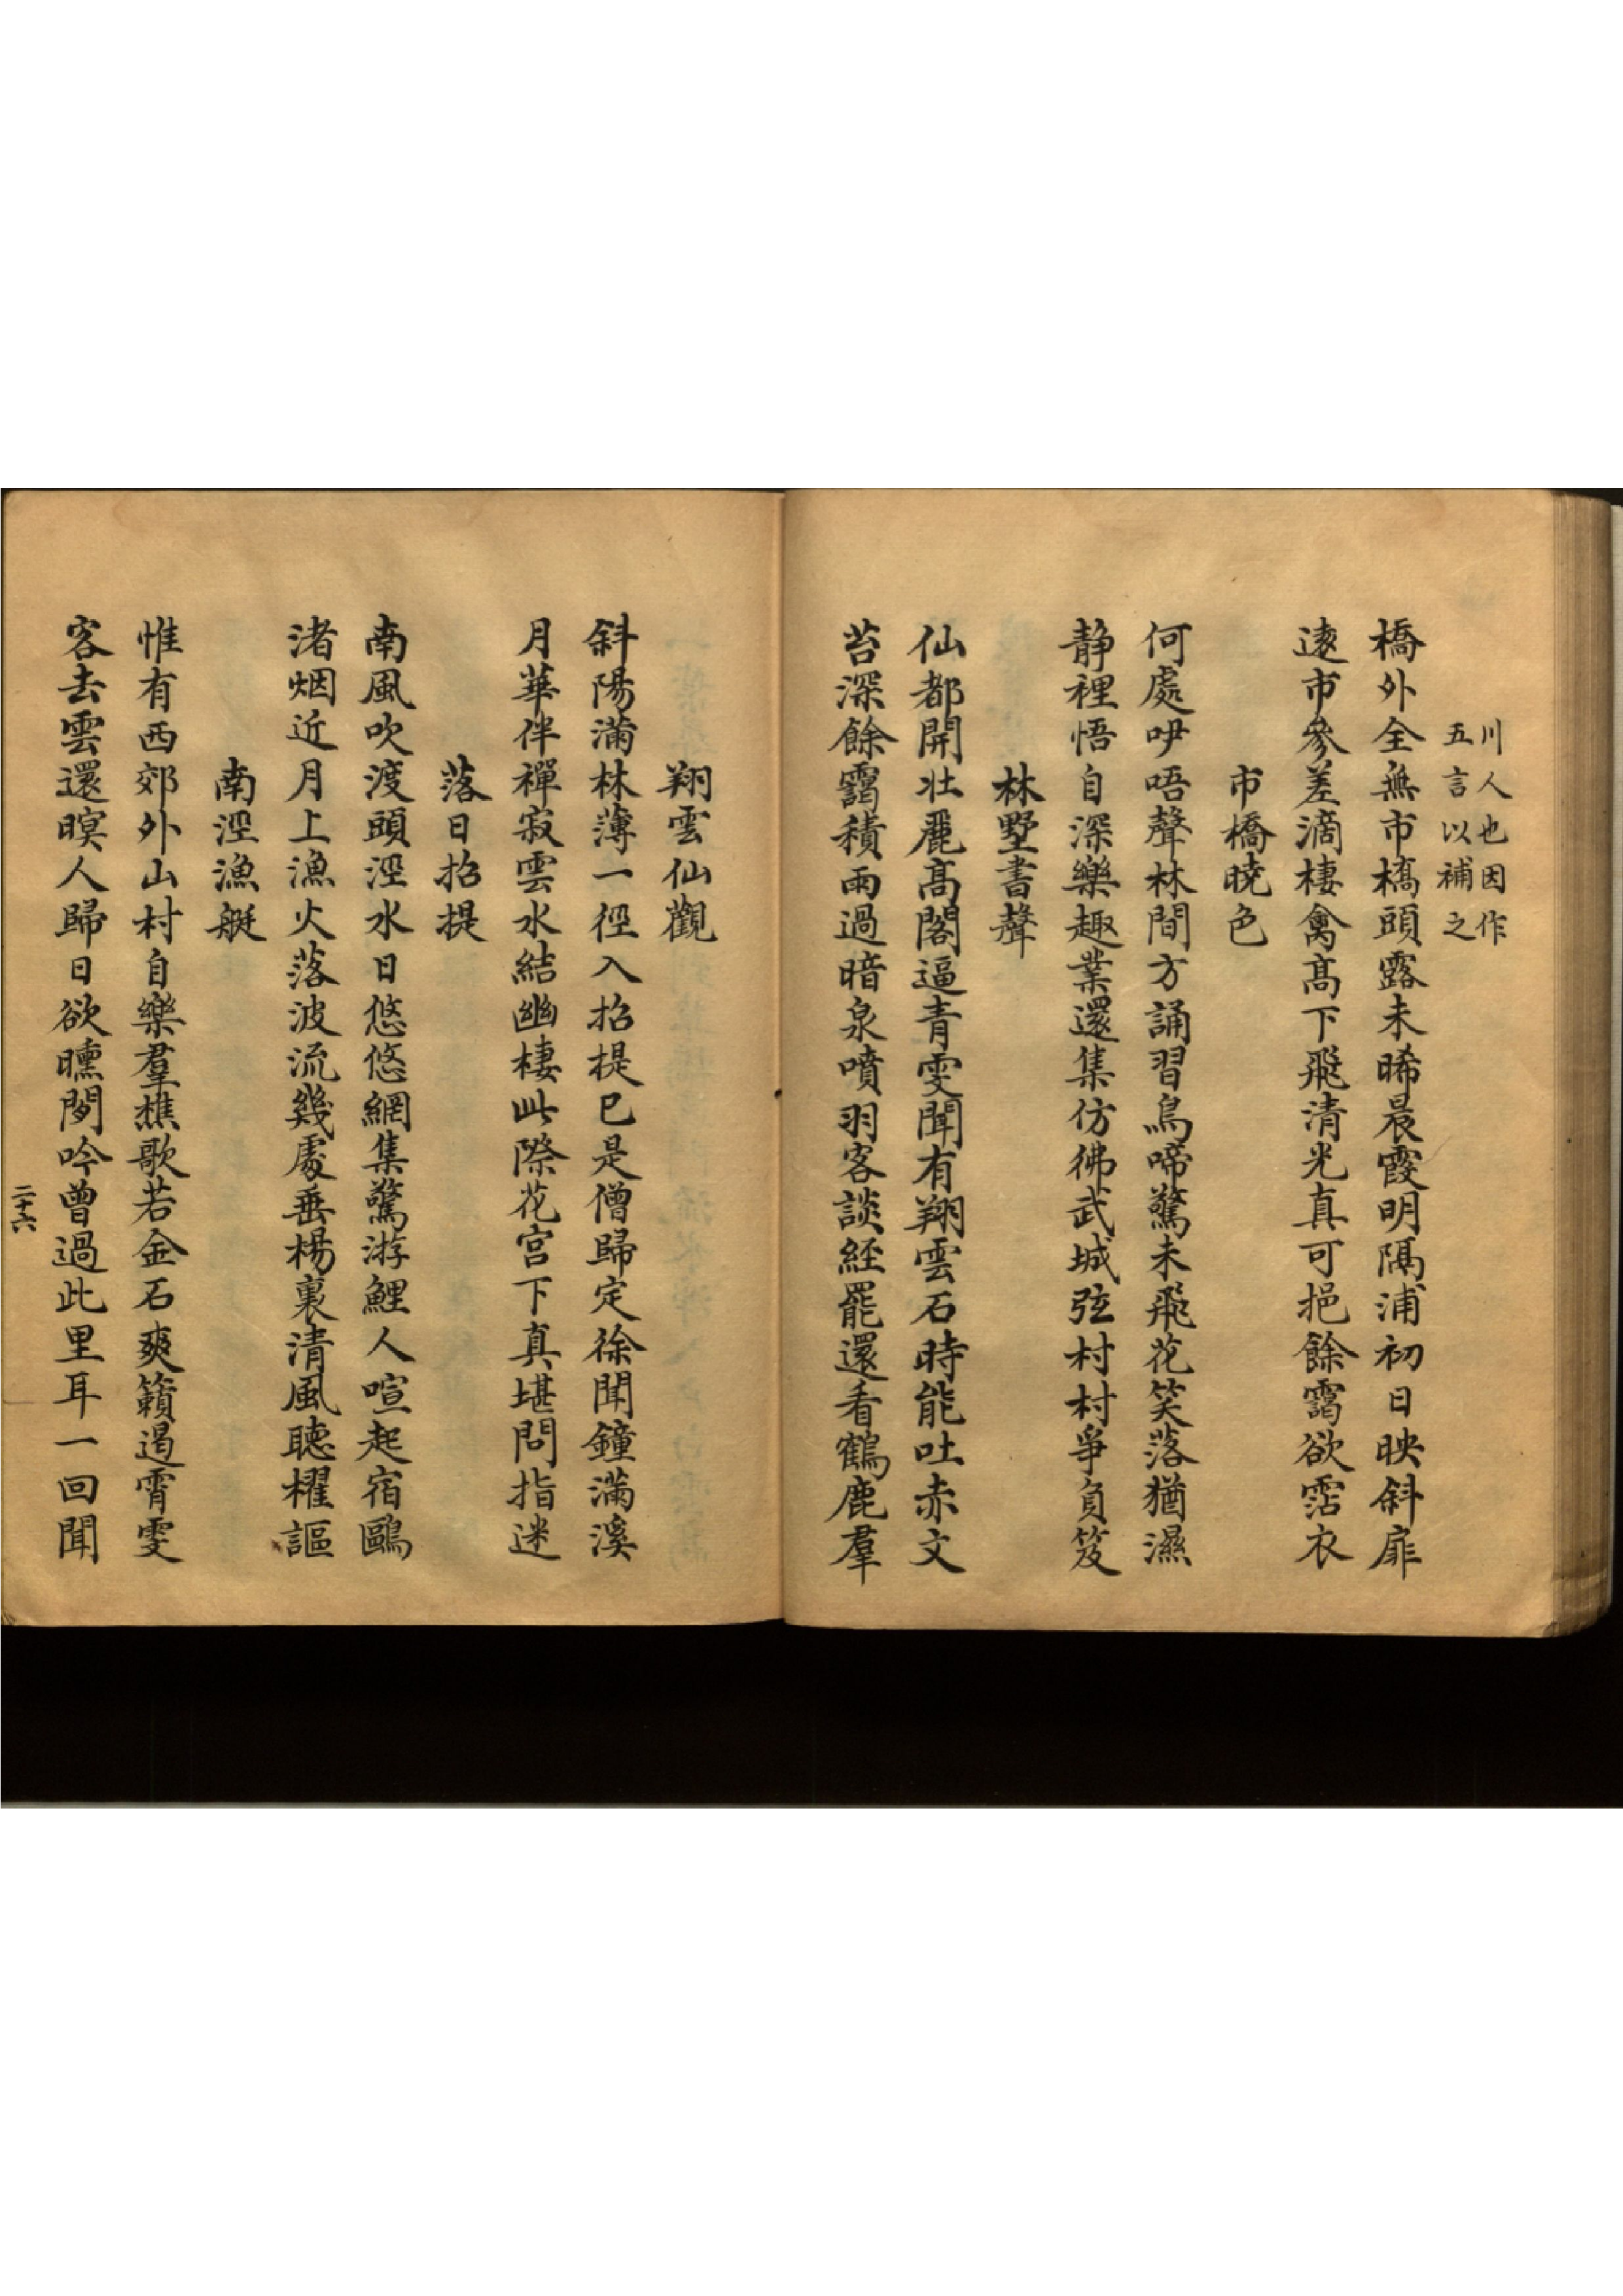 川人也因作
五言以補之
橋外全無市橋頭露未晞晨霞明隔浦初日映斜扉
遠市參差滴棲禽高下飛清光真可挹餘靄欲霑衣
市橋曉色
何處吚唔聲林間方誦習鳥啼驚未飛花笑落猶濕
静裡悟自深樂趣業還集仿彿武城弦村村爭負笈
林墅書聲
仙都開壯麗高閣逼青雯聞有翔雲石時能吐赤文
苔深餘靄積雨過暗泉噴羽客談經罷還看鶴鹿羣
翔雲仙觀
斜陽滿林薄一徑入招提已是僧歸定徐聞鐘滿溪
月華伴禪寂雲水結幽棲此際花宫下真堪問指迷
落日招提
南風吹渡頭涇水日悠悠網集驚游鯉人喧起宿鷗
渚烟近月上漁火落波流幾處垂楊裏清風聽櫂謳
南涇漁艇
惟有西郊外山村自樂羣樵歌若金石爽籟遏霄雯
客去雲還暝人歸日欲曛閒吟曾過此里耳一回聞
二十六